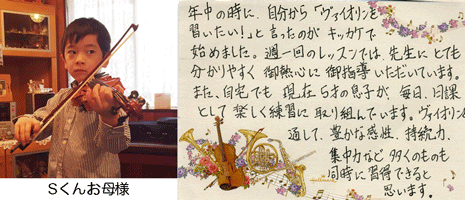 年中の時に、自分から「ヴァイオリンを
習いたい!」と言ったのが キッカケで
始めました。週一回のレッスンでは、先生に とても
分かりやすく 御熱心に 御指導 いただいています。
また、自宅でも 現在 6才の息子が、毎日、日課
として 楽しく練習に 取り組んでいます。ヴァイオリンを
通して、豊かな感性、持続力、
集中力など 多くのものも
同時に習得できると
思います。
Sくんお母様